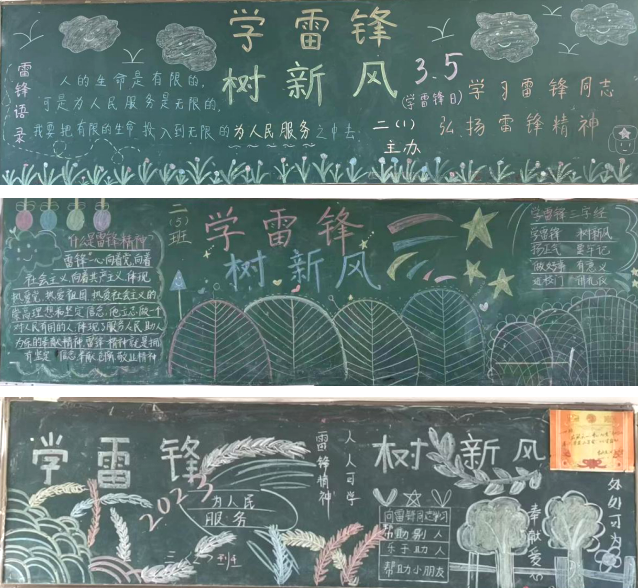 学雷锋
树新风
雷锋语录
人的生命是有限的,
可是为人民服务是无限的,
我要把有限的生命投入到无限的为人民服务之中去
3.5
(学雷锋日)
学习雷锋同志
二(1)
弘扬雷锋精神
主办
二(5)班
学雷锋
树新风
什么是雷锋精神
雷锋一心向着党,向着
社会主义,向着共产主义,体现
热爱党,热爱祖国,热爱社会主义的
崇高理想和坚定信念,他立志做一个
对人民有用的人,体现了服务人民,助人
为乐的奉献精神,雷锋精神就是拥
有坚定
学雷锋三字经
学雷锋 树新风
做好事 有意义
学雷锋
树新风
2023
为人民
服务
雷锋精神
人人可学
向雷锋同志学习
帮助别人
乐于助人
帮助小朋友
奉献爱
处处可为